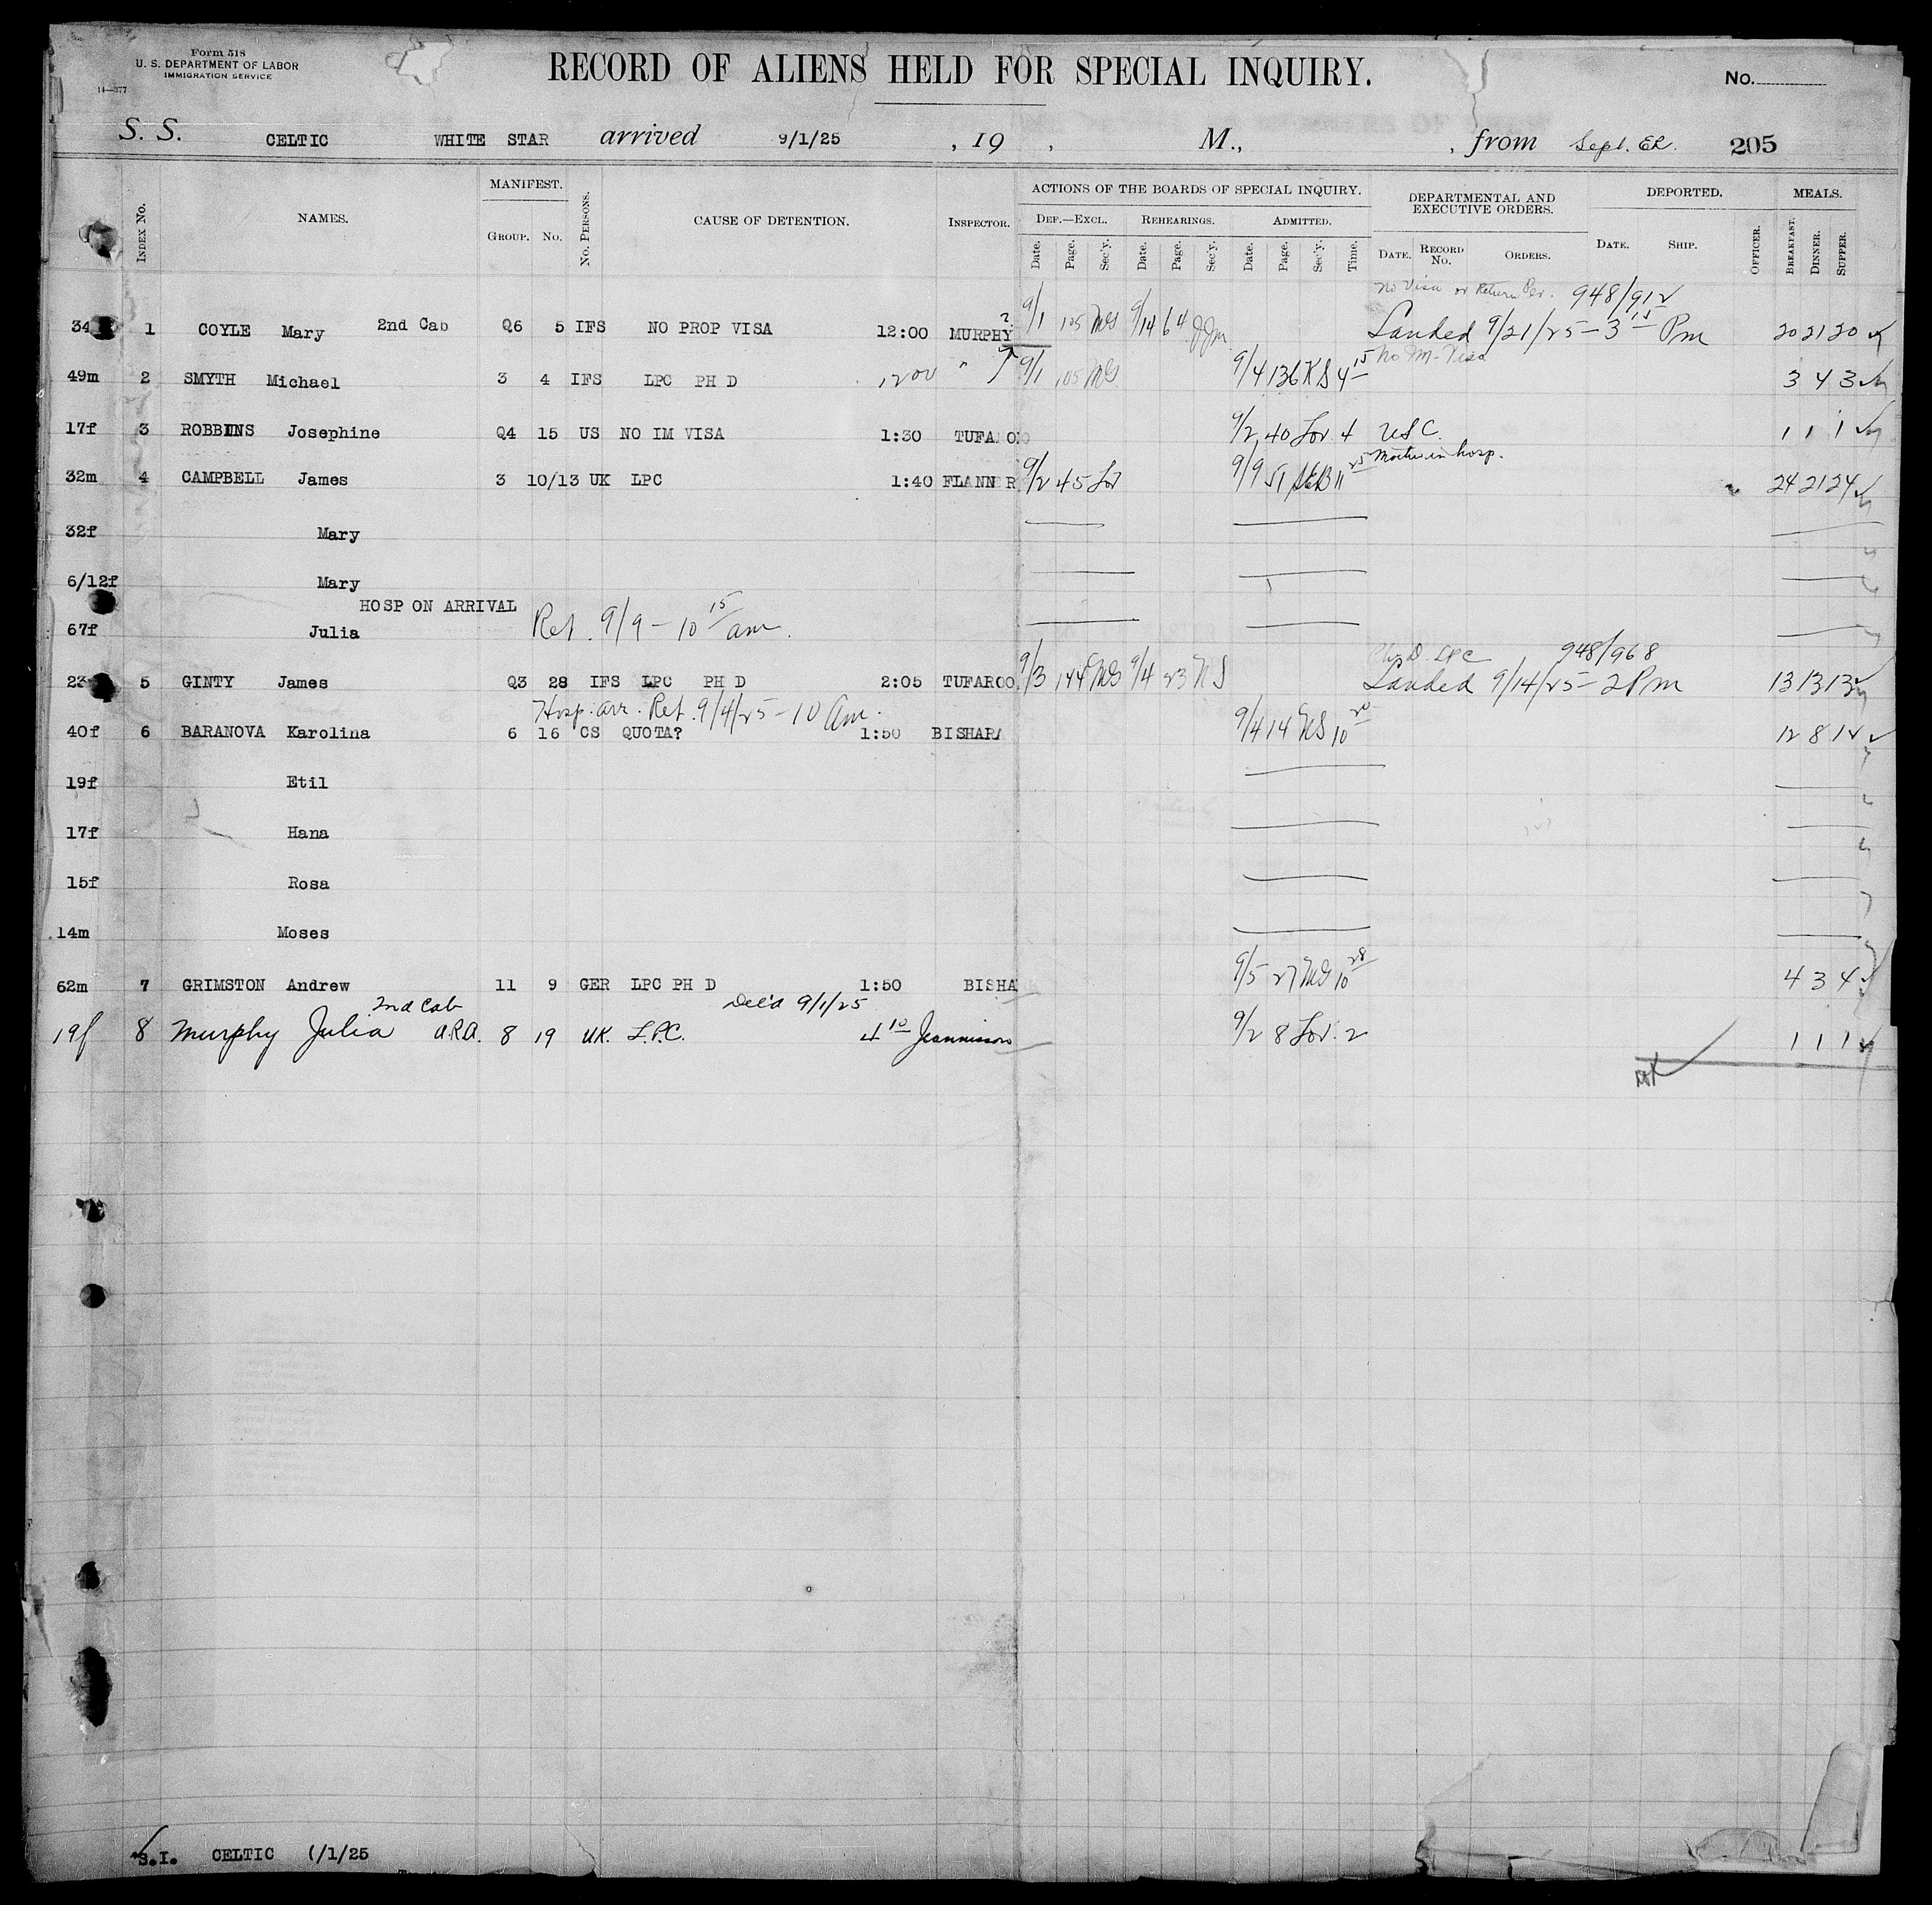 Form 518
U. S. DEPARTMENT OF LABOR
IMMIGRATION SERVICE
14—377
RECORD OF ALIENS HELD FOR SPECIAL INQUIRY.
No.
S. S. CELTIC WHITE STAR arrived 9/1/25 , 19 , M., , from Sept. ER. 205
INDEX No. NAMES. MANIFEST. GROUP. No. No. PERSONS. CAUSE OF DETENTION. INSPECTOR. ACTIONS OF THE BOARDS OF SPECIAL INQUIRY. DEF.—EXCL. REHEARINGS. ADMITTED. DEPARTMENTAL AND EXECUTIVE ORDERS. DEPORTED. MEALS.
Date. Page. Sec'y. Date. Page. Sec'y. Date. Page. Sec'y. Time. DATE. RECORD No. ORDERS. DATE. SHIP. OFFICER. BREAKFAST. DINNER. SUPPER.
No Visa or Return Per. 948/912
34 1 COYLE Mary 2nd Cab Q6 5 IFS NO PROP VISA 12:00 MURPHY 9/1 105 MS 9/14 64 JJM Landed 9/21/25 - 3 15 Pm 20 21 20
No M. Visa
49m 2 SMYTH Michael 3 4 IFS LPC PH D 12 00 " 9/1 105 MS 9/4 136 KS 4 15 3 4 3
17f 3 ROBBINS Josephine Q4 15 US NO IM VISA 1:30 TUFARO 9/2 40 Lov 4 USC. 1 1 1
Mother in hosp.
32m 4 CAMPBELL James 3 10/13 UK LPC 1:40 FLANNER 9/2 45 Lov 9/9 51 11 25 24 21 24
32f Mary
6/12f Mary
HOSP ON ARRIVAL
67f Julia Ret. 9/9 - 10 15 am.
Phy D. LPC 948/968
23 5 GINTY James Q3 28 IFS LPC PH D 2:05 TUFAROO 9/3 144 MS 9/4 23 NS Landed 9/14/25 - 2 Pm 13 13 13
Hosp. arr. Ret. 9/4/25 - 10 Am.
40f 6 BARANOVA Karolina 6 16 CS QUOTA? 1:50 BISHARA 9/4 14 NS 10 20 12 8 12
19f Etil
17f Hana
15f Rosa
14m Moses
62m 7 GRIMSTON Andrew 11 9 GER LPC PH D 1:50 BISHA 9/5 27 MS 10 28 4 3 4
2nd Cab Del'd 9/1/25
19f 8 Murphy Julia 8 19 UK. L.P.C. 4 10 9/2 8 Lov. 2 1 1 1
S.I. CELTIC (/1/25